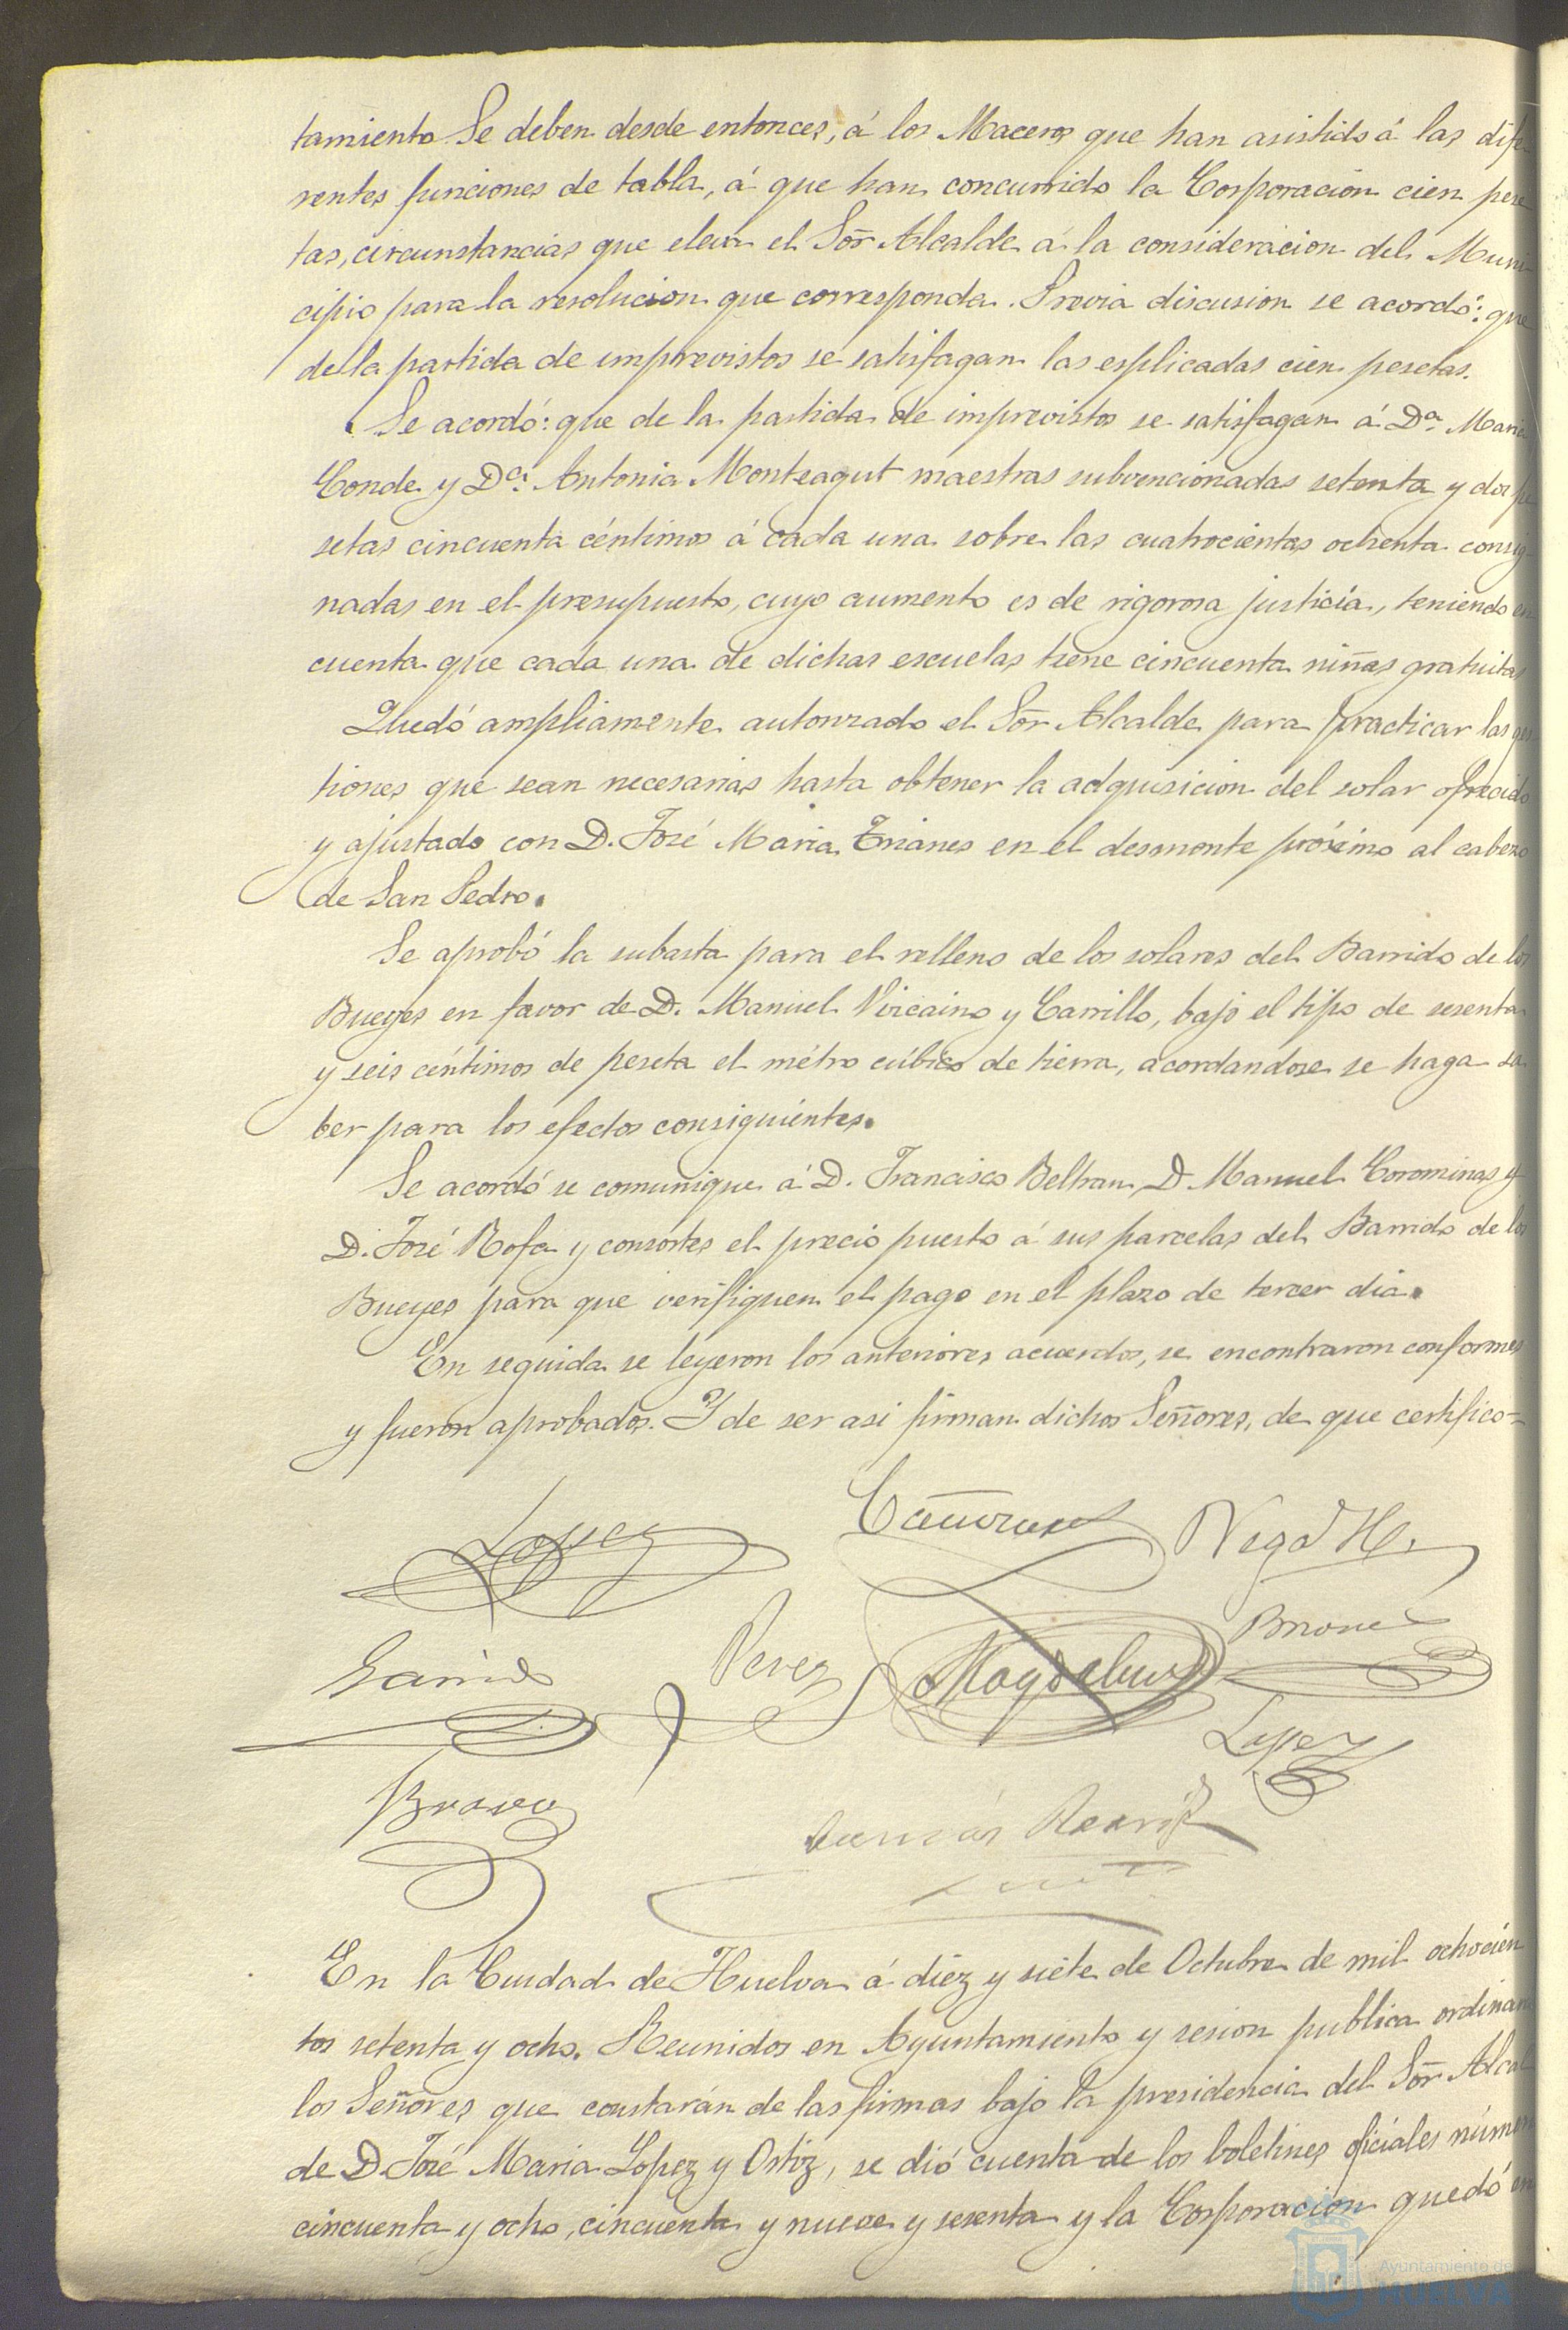 tamiento. Se deben desde entonces, á los Maceros que han asistido á las dife
rentes funciones de tabla, á que han concurrido la Corporacion cien pese
tas, circunstancias que eleva el Sor Alcalde á la consideracion del Muni
cipio para la resolucion que corresponda. Previa discusion se acordó: que
de la partida de imprevistos se satisfagan las esplicadas cien pesetas.
Se acordó: que de la partida de imprevistos se satisfagan á Da. Maria
Conde y Da. Antonia Monteagut maestras subvencionadas setenta y dos pe
setas cincuenta céntimos á cada una sobre las cuatrocientas ochenta consig
nadas en el presupuesto, cuyo aumento es de rigorosa justicia, teniendo en
cuenta que cada una de dichas escuelas tiene cincuenta niñas gratuitas
Quedó ampliamente autorizado el Sor Alcalde para practicar las ges
tiones que sean necesarias hasta obtener la adquisicion del solar ofrecido
y ajustado con D. José Maria Trianes en el desmonte próximo al cabezo
de San Pedro.
Se aprobó la subasta para el relleno de los solares del Barrido de los
Bueyes en favor de D. Manuel Vizcaino y Carrillo, bajo el tipo de sesenta
y seis céntimos de peseta el métro cúbico de tierra, acordandose se haga sa
ber para los efectos consiguientes.
Se acordó se comunique á D. Francisco Beltran, D. Manuel Corominas y
D. José Rofa y consortes el precio puesto á sus parcelas del Barrido de los
Bueyes para que verifiquen el pago en el plazo de tercer dia.
En seguida se leyeron los anteriores acuerdos, se encontraron conformes
y fueron aprobados. Y de ser asi firman dichos Señores, de que certifico=
Lopez
Vega H.
Garrido Perez
Lopez
Bravo
En la Ciudad de Huelva á diez y siete de Octubre de mil ochocien
tos setenta y ocho. Reunidos en Ayuntamiento y sesion publica ordinaria
los Señores que constarán de las firmas bajo la presidencia del Sor Alcal
de D. José Maria Lopez y Ortiz, se dió cuenta de los boletines oficiales número
cincuenta y ocho, cincuenta y nueve y sesenta y la Corporacion quedó en
Ayuntamiento de
HUELVA